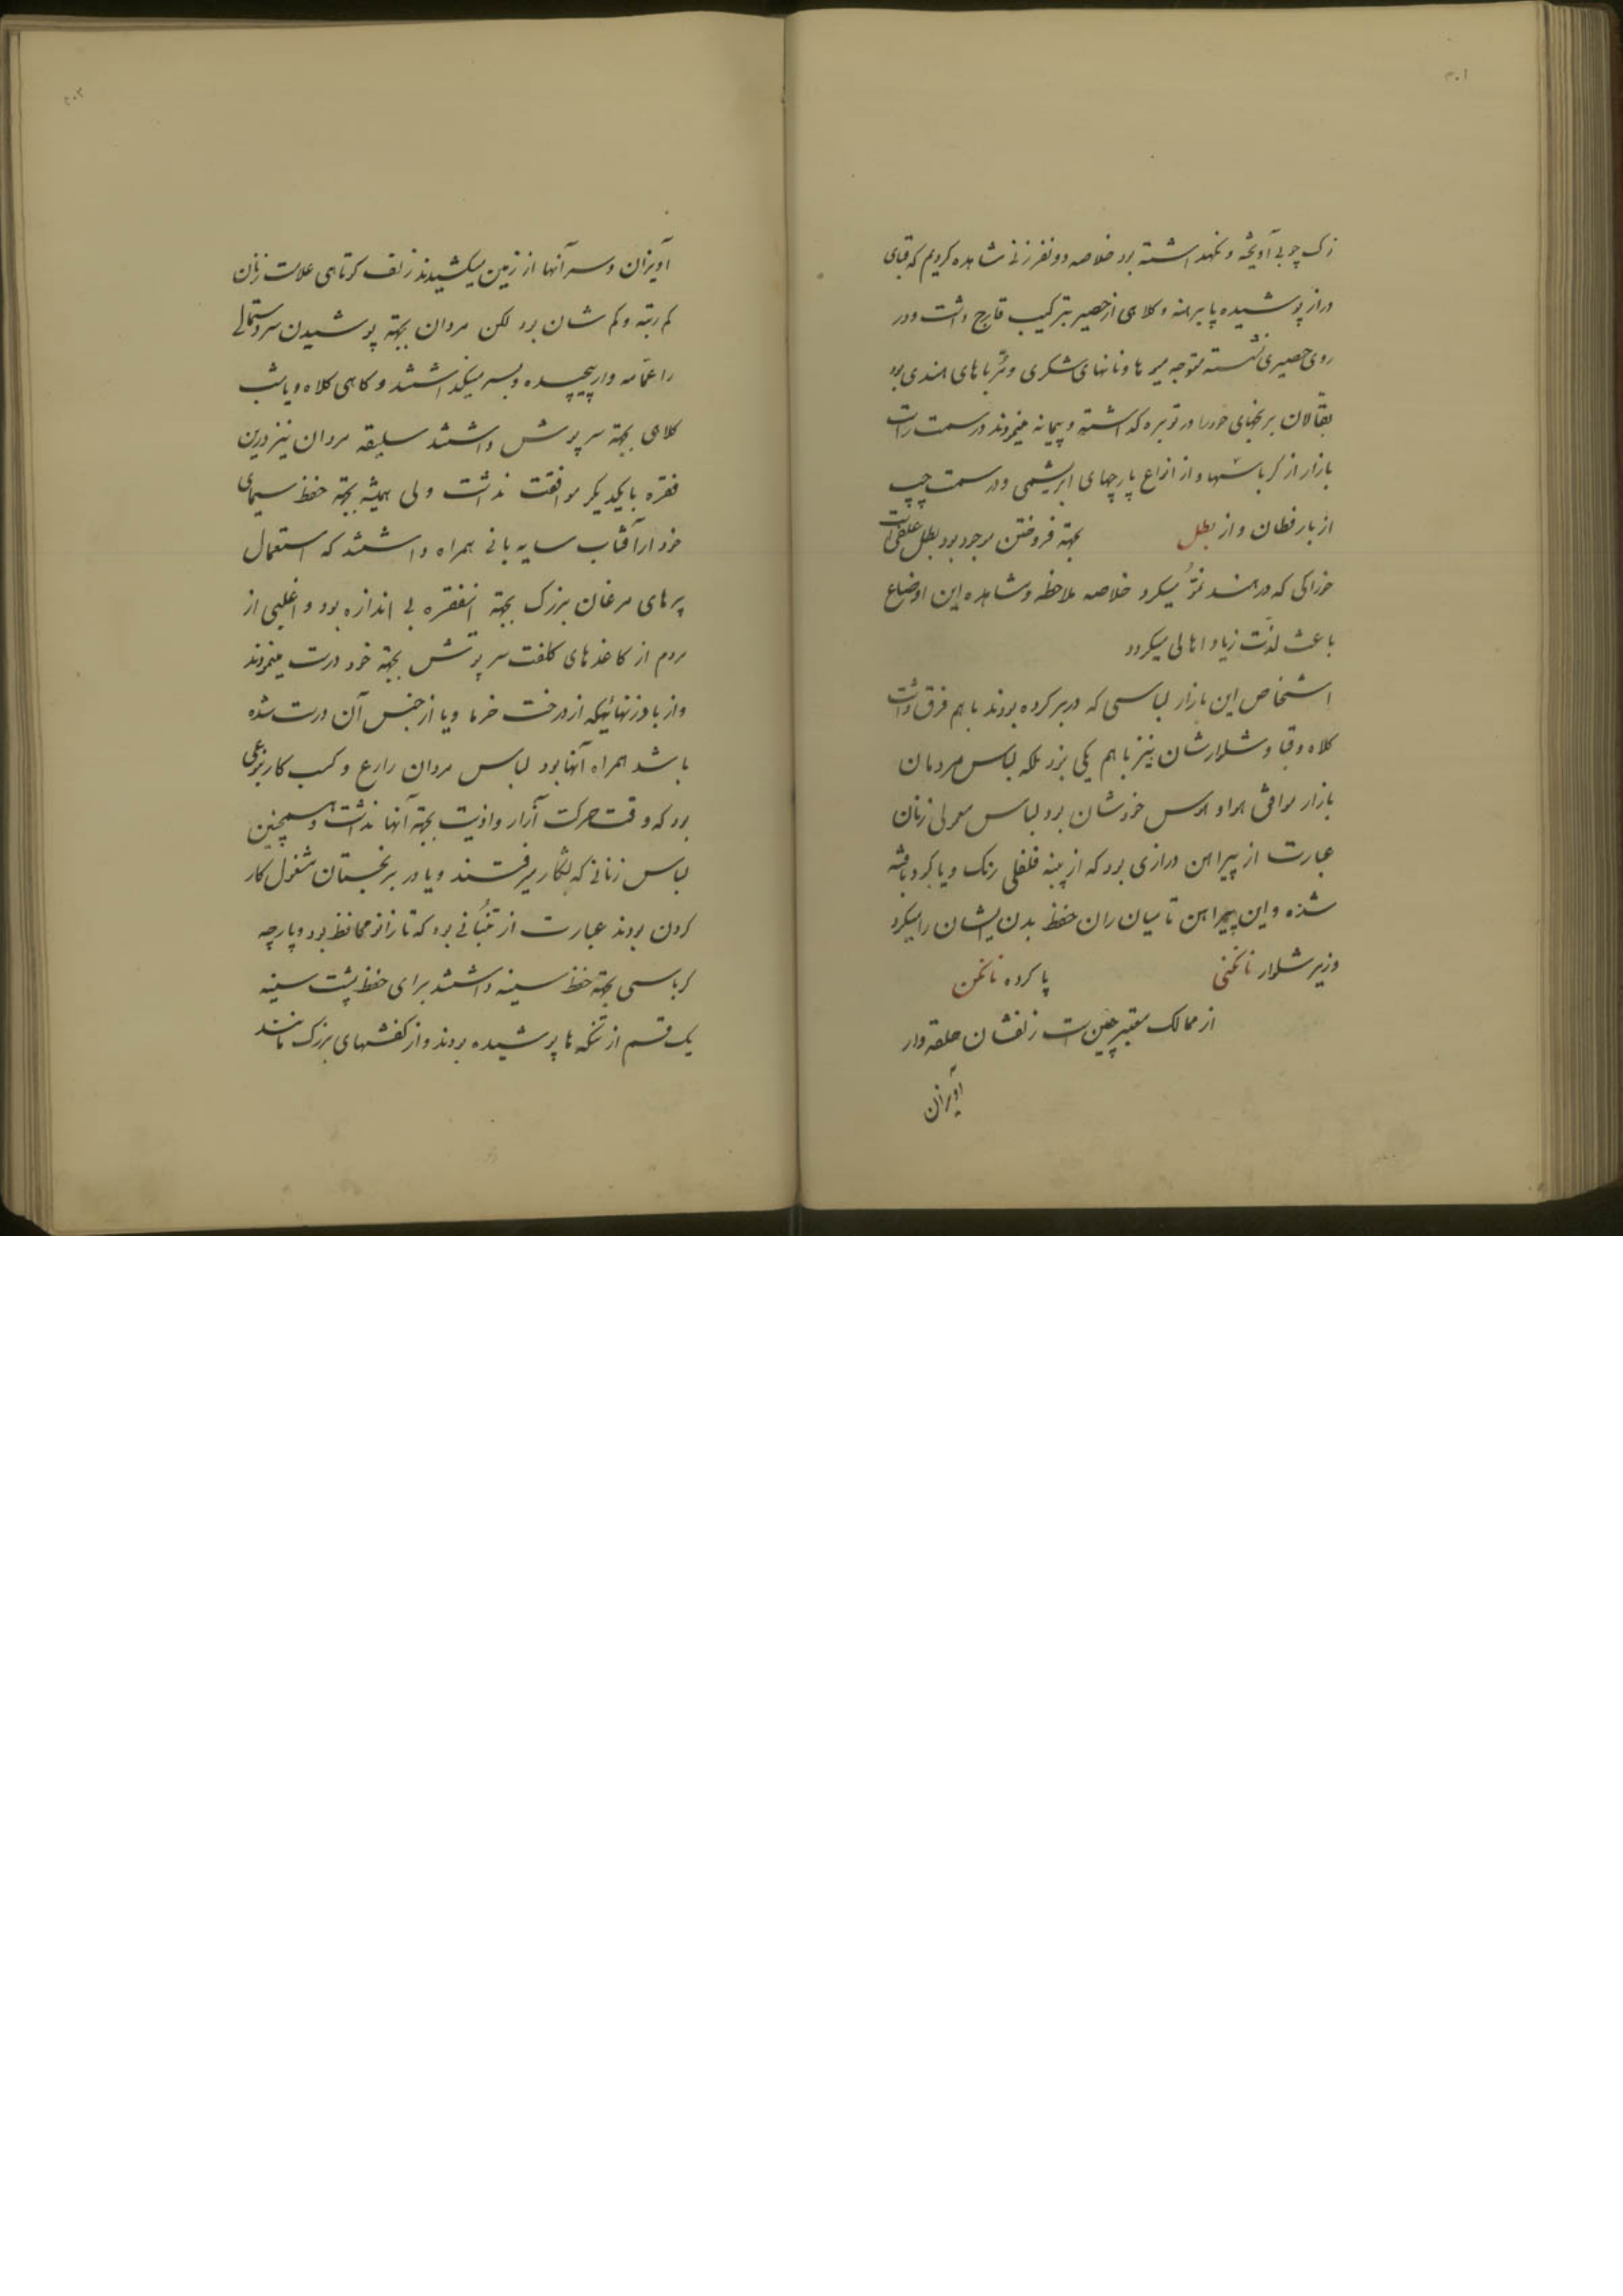 ۳۰۱
نوک چوبی آویخته و نگهداشته بود خلاصه دو نفر زنی مشاهده کردیم که قبای
دراز پوشیده پا برهنه و کلاهی از حصیر بترکیب قارچ داشت و در
روی حصیری نشسته متوجه میوه‌ها و نانهای شکری و مربا‌های هندی بود
بقالان برنجهای خود را در توبره گذاشته و پیمانه مینمودند در سمت راست
بازار از کرباسها و از انواع پارچهای ابریشمی و در سمت چپ
از بارفطان و از بطل بجهة فروختن موجود بود بطل علفی است
خوراکی که در هند نمو میکرد خلاصه ملاحظه و مشاهده این اوضاع
باعث لذت زیاد اهالی میگردد
اشخاص این بازار لباسی که در بر کرده بودند با هم فرق داشت
کلاه و قبا و شلوارشان نیز با هم یکی نبود بلکه لباس مردمان
بازار موافق هوا و هوس خودشان بود لباس معمولی زنان
عبارت از پیراهن درازی بود که از پنبه فلفلی رنگ و یا کبود بافته
شده و این پیراهن تا میان ران حفظ بدن ایشان را میکرد
و زیر شلوار نانکنی پا کرده نانکن
از ممالک معتبر چین است زلفشان حلقه‌وار
آویزان
۳۰۲
آویزان و سر آنها از زمین میکشیدند زلف کوتاهی علامت زنان
کم رتبه و کم شان بود لکن مردان بجهة پوشیدن سر دستمالی
را عمامه وار پیچیده و بسر میگذاشتند و گاهی کلاه و یا شب
کلاهی بجهة سرپوش داشتند سلیقه مردان نیز درین
فقره با یکدیگر موافقت نداشت ولی همیشه بجهة حفظ سیمای
خود از آفتاب سایه بانی همراه داشتند که استعمال
پرهای مرغان بزرگ بجهة اینفقره بی اندازه بود و اغلبی از
مردم از کاغذهای کلفت سرپوش بجهة خود درست مینمودند
و از بادزنهائیکه از درخت خرما و یا از جنس آن درست شده
باشد همراه آنها بود لباس مردان زارع و کسب کار بنوعی
بود که وقت حرکت آزار و اذیت بجهة آنها نداشت و همچنین
لباس زنانی که بشکار میرفتند و یا در برنجستان مشغول کار
کردن بودند عبارت از تنبانی بود که تا زانو محافظ بود و پارچه
کرباسی بجهة حفظ سینه داشتند برای حفظ پشت سینه
یک قسم از تنکه‌ها پوشیده بودند و از کفشهای بزرگ مانند